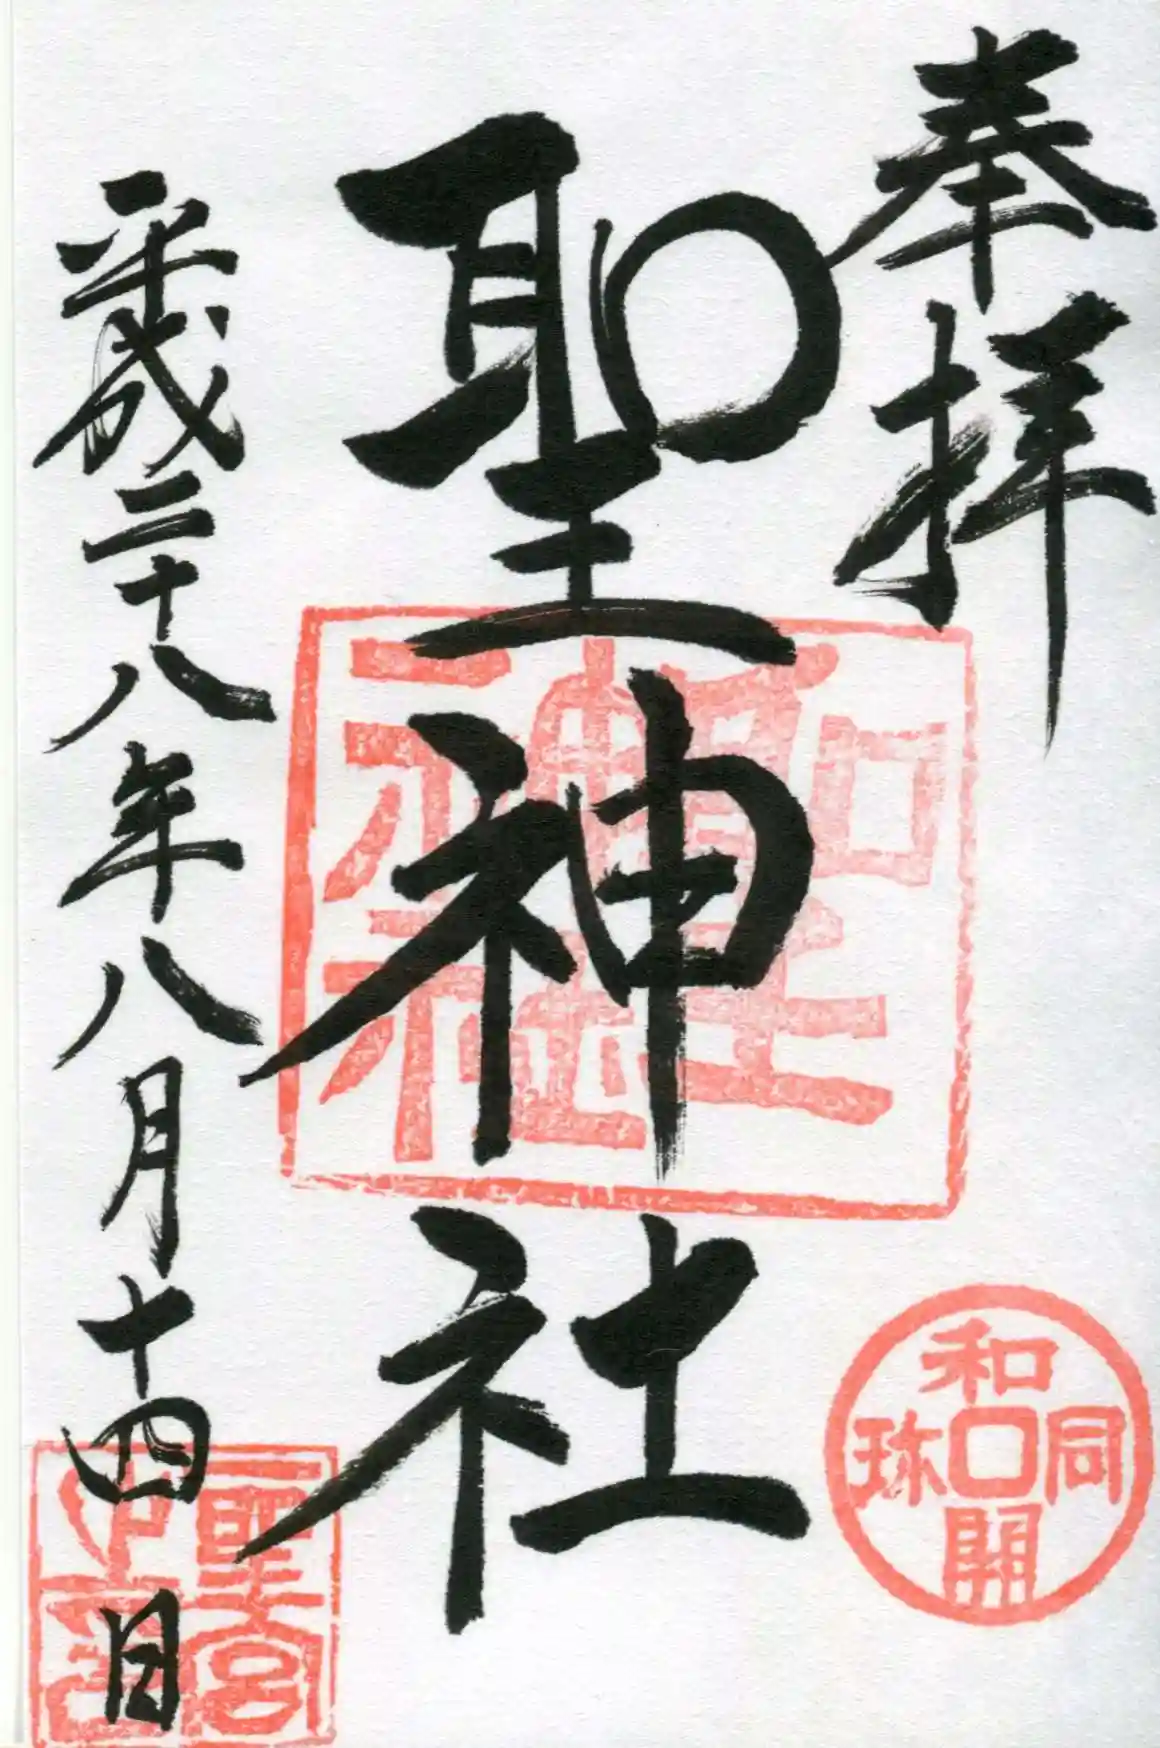 奉拝
聖神社
平成二十八年八月十四日
聖神社
和同開珎
聖宮